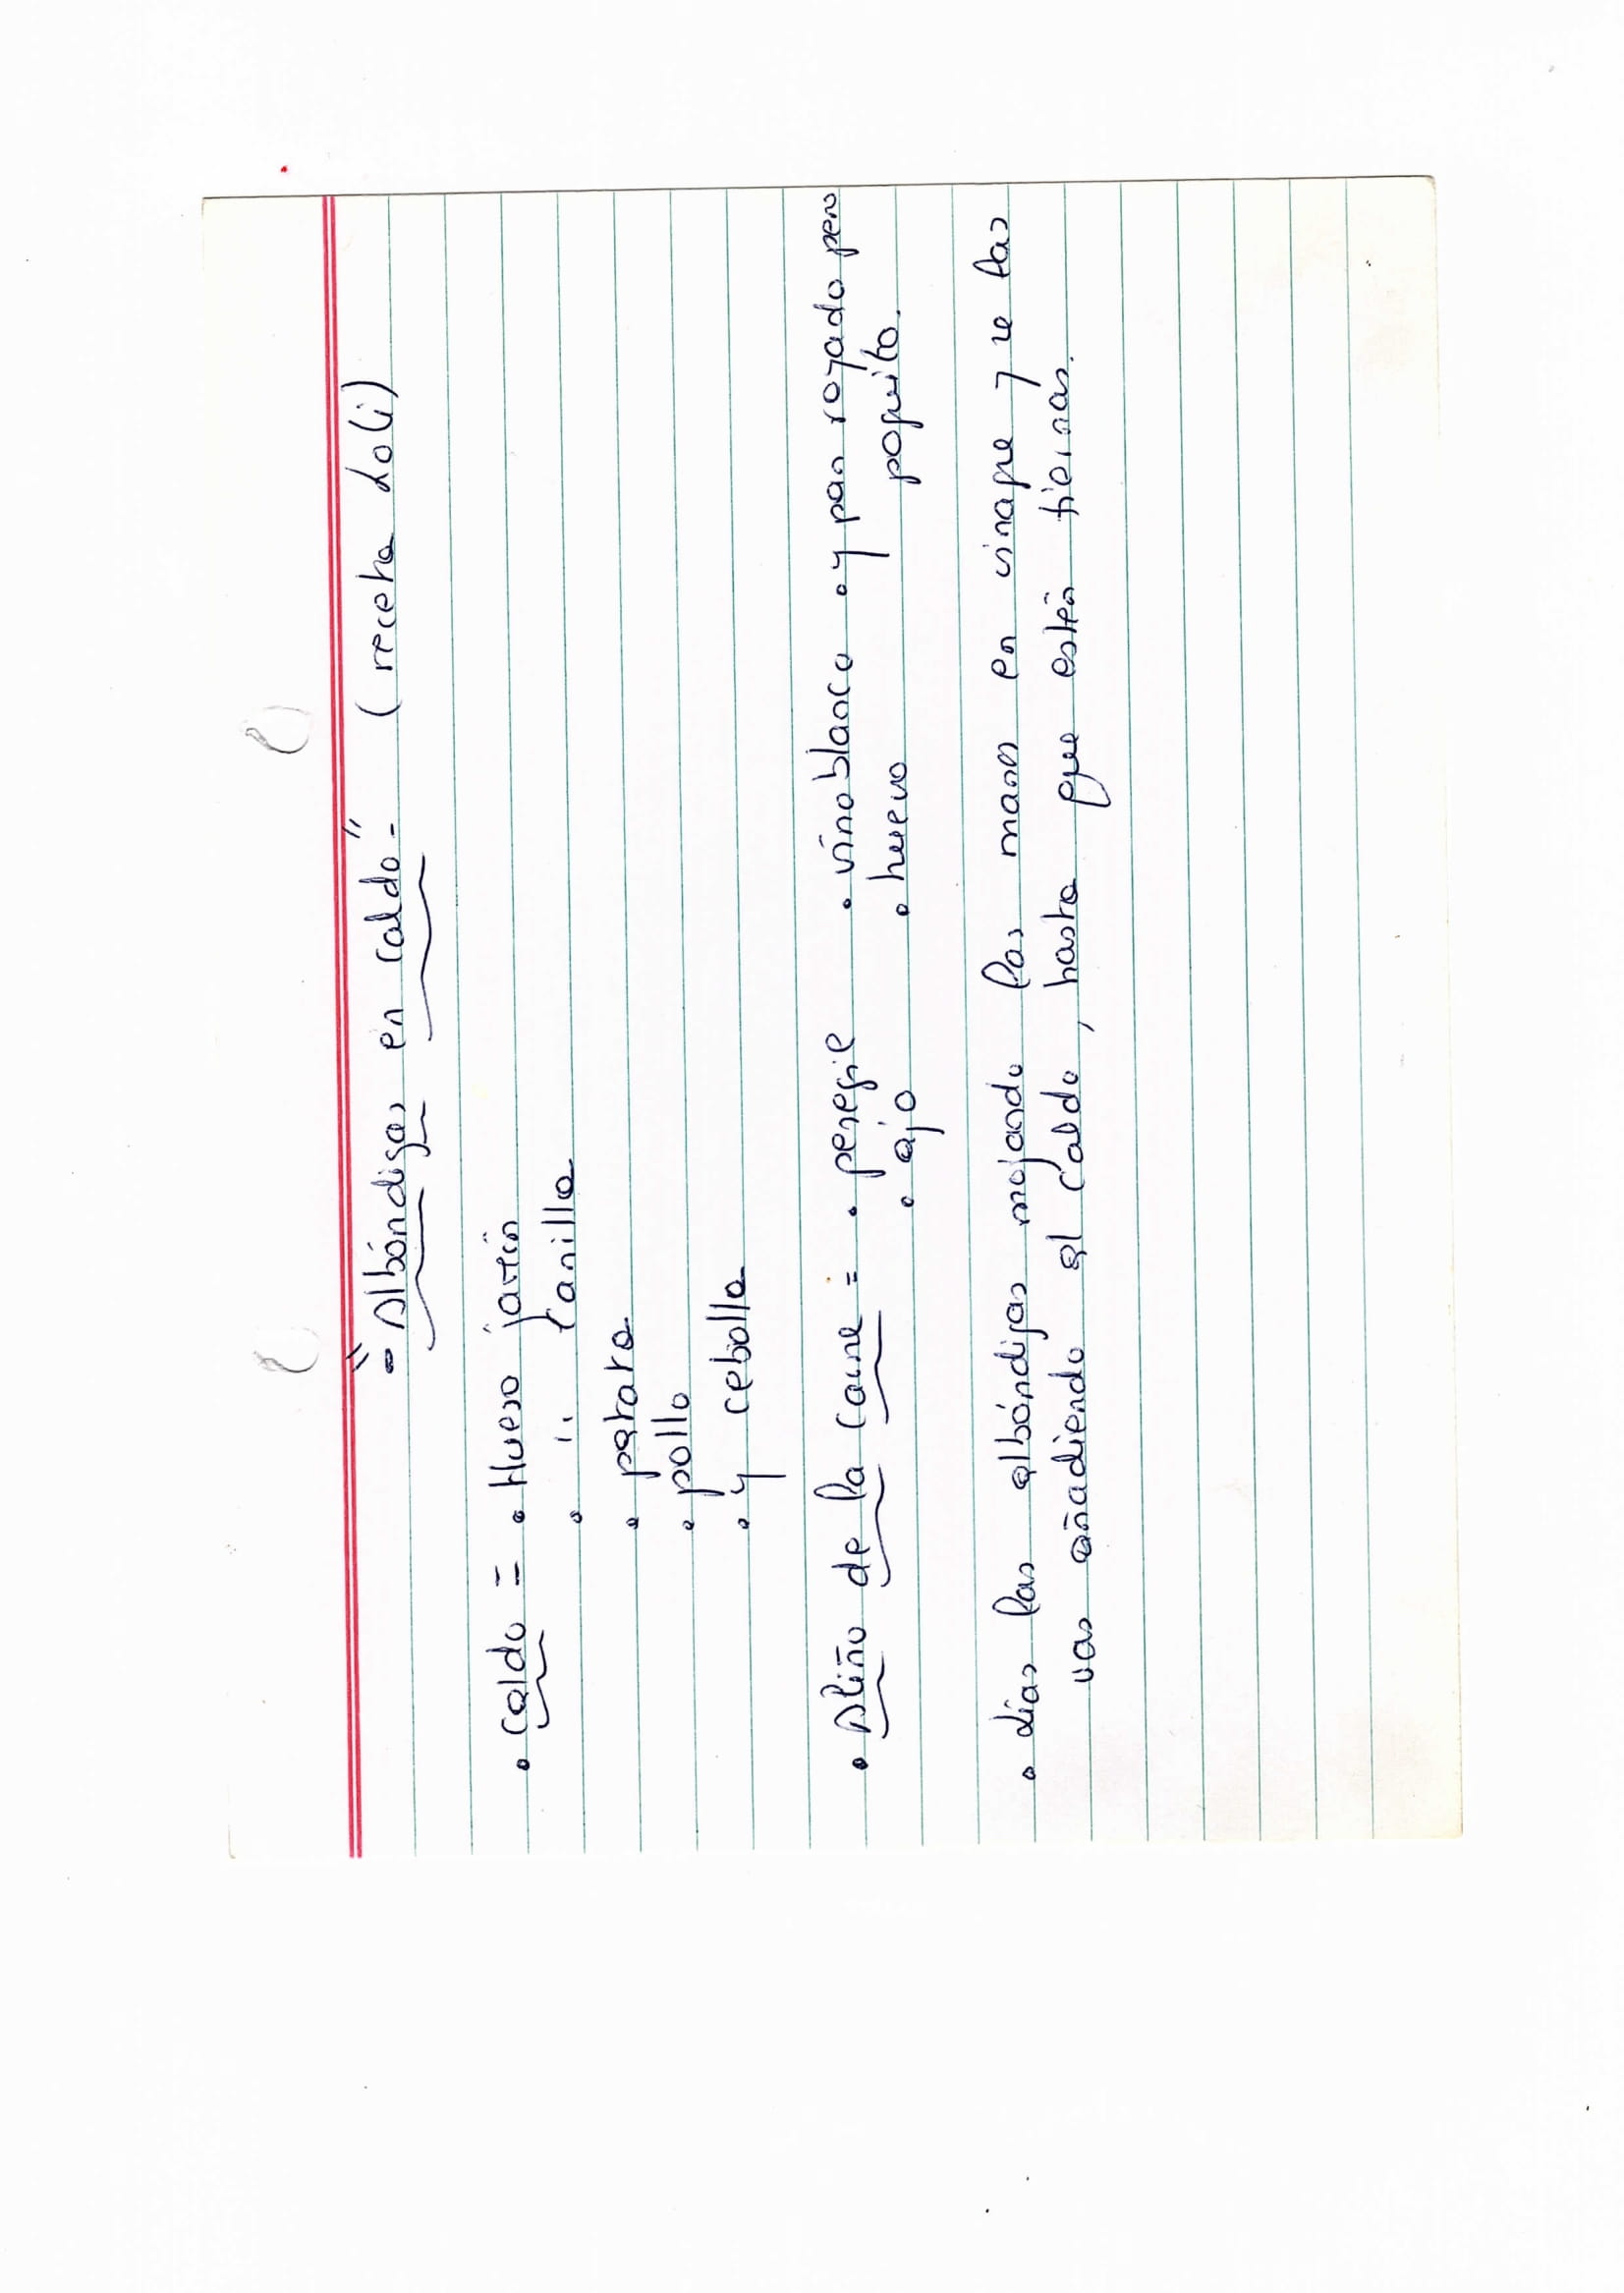 "- Albóndigas en caldo -" (receta Loli)
• Caldo = • Hueso jamón
• " canilla
• patata
• pollo
• y cebolla
• Aliño de la carne = • peregil • vino blanco • y pan rayado pero poquito.
• ajo • huevo
• Lías las albóndigas mojando las manos en vinagre y se las
vas añadiendo al caldo, hasta que estén tiernas.